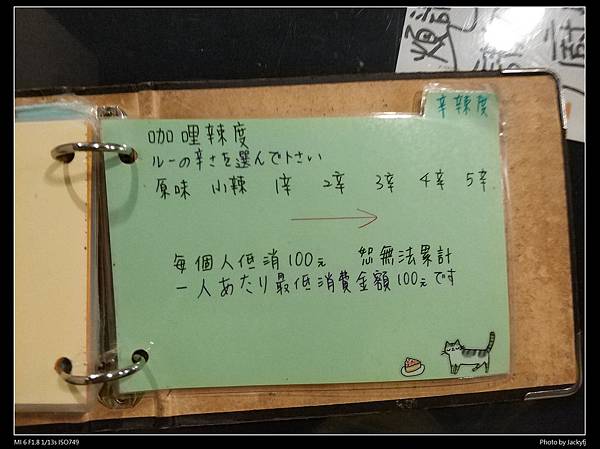 辛辣度
咖哩辣度
ルーの辛さを選んで下さい
原味 小辣 1辛 2辛 3辛 4辛 5辛
每個人低消100元 恕無法累計
一人あたり最低消費金額100元です
MI 6 F1.8 1/13s ISO749
Photo by Jackyfj